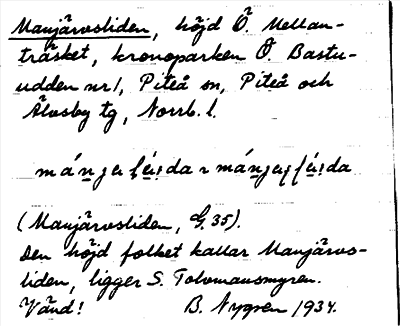 Manjärvsliden, höjd Ö. Mellan-
träsket, kronoparken Ö. Bastu-
udden nr 1, Piteå sn, Piteå och
Älvsby tg, Norrb. l.
(Manjärvsliden, G. 35).
Den höjd folket kallar Manjärvs-
liden, ligger S. Tolvmansmyren.
Vänd! B. Nygren 1934.